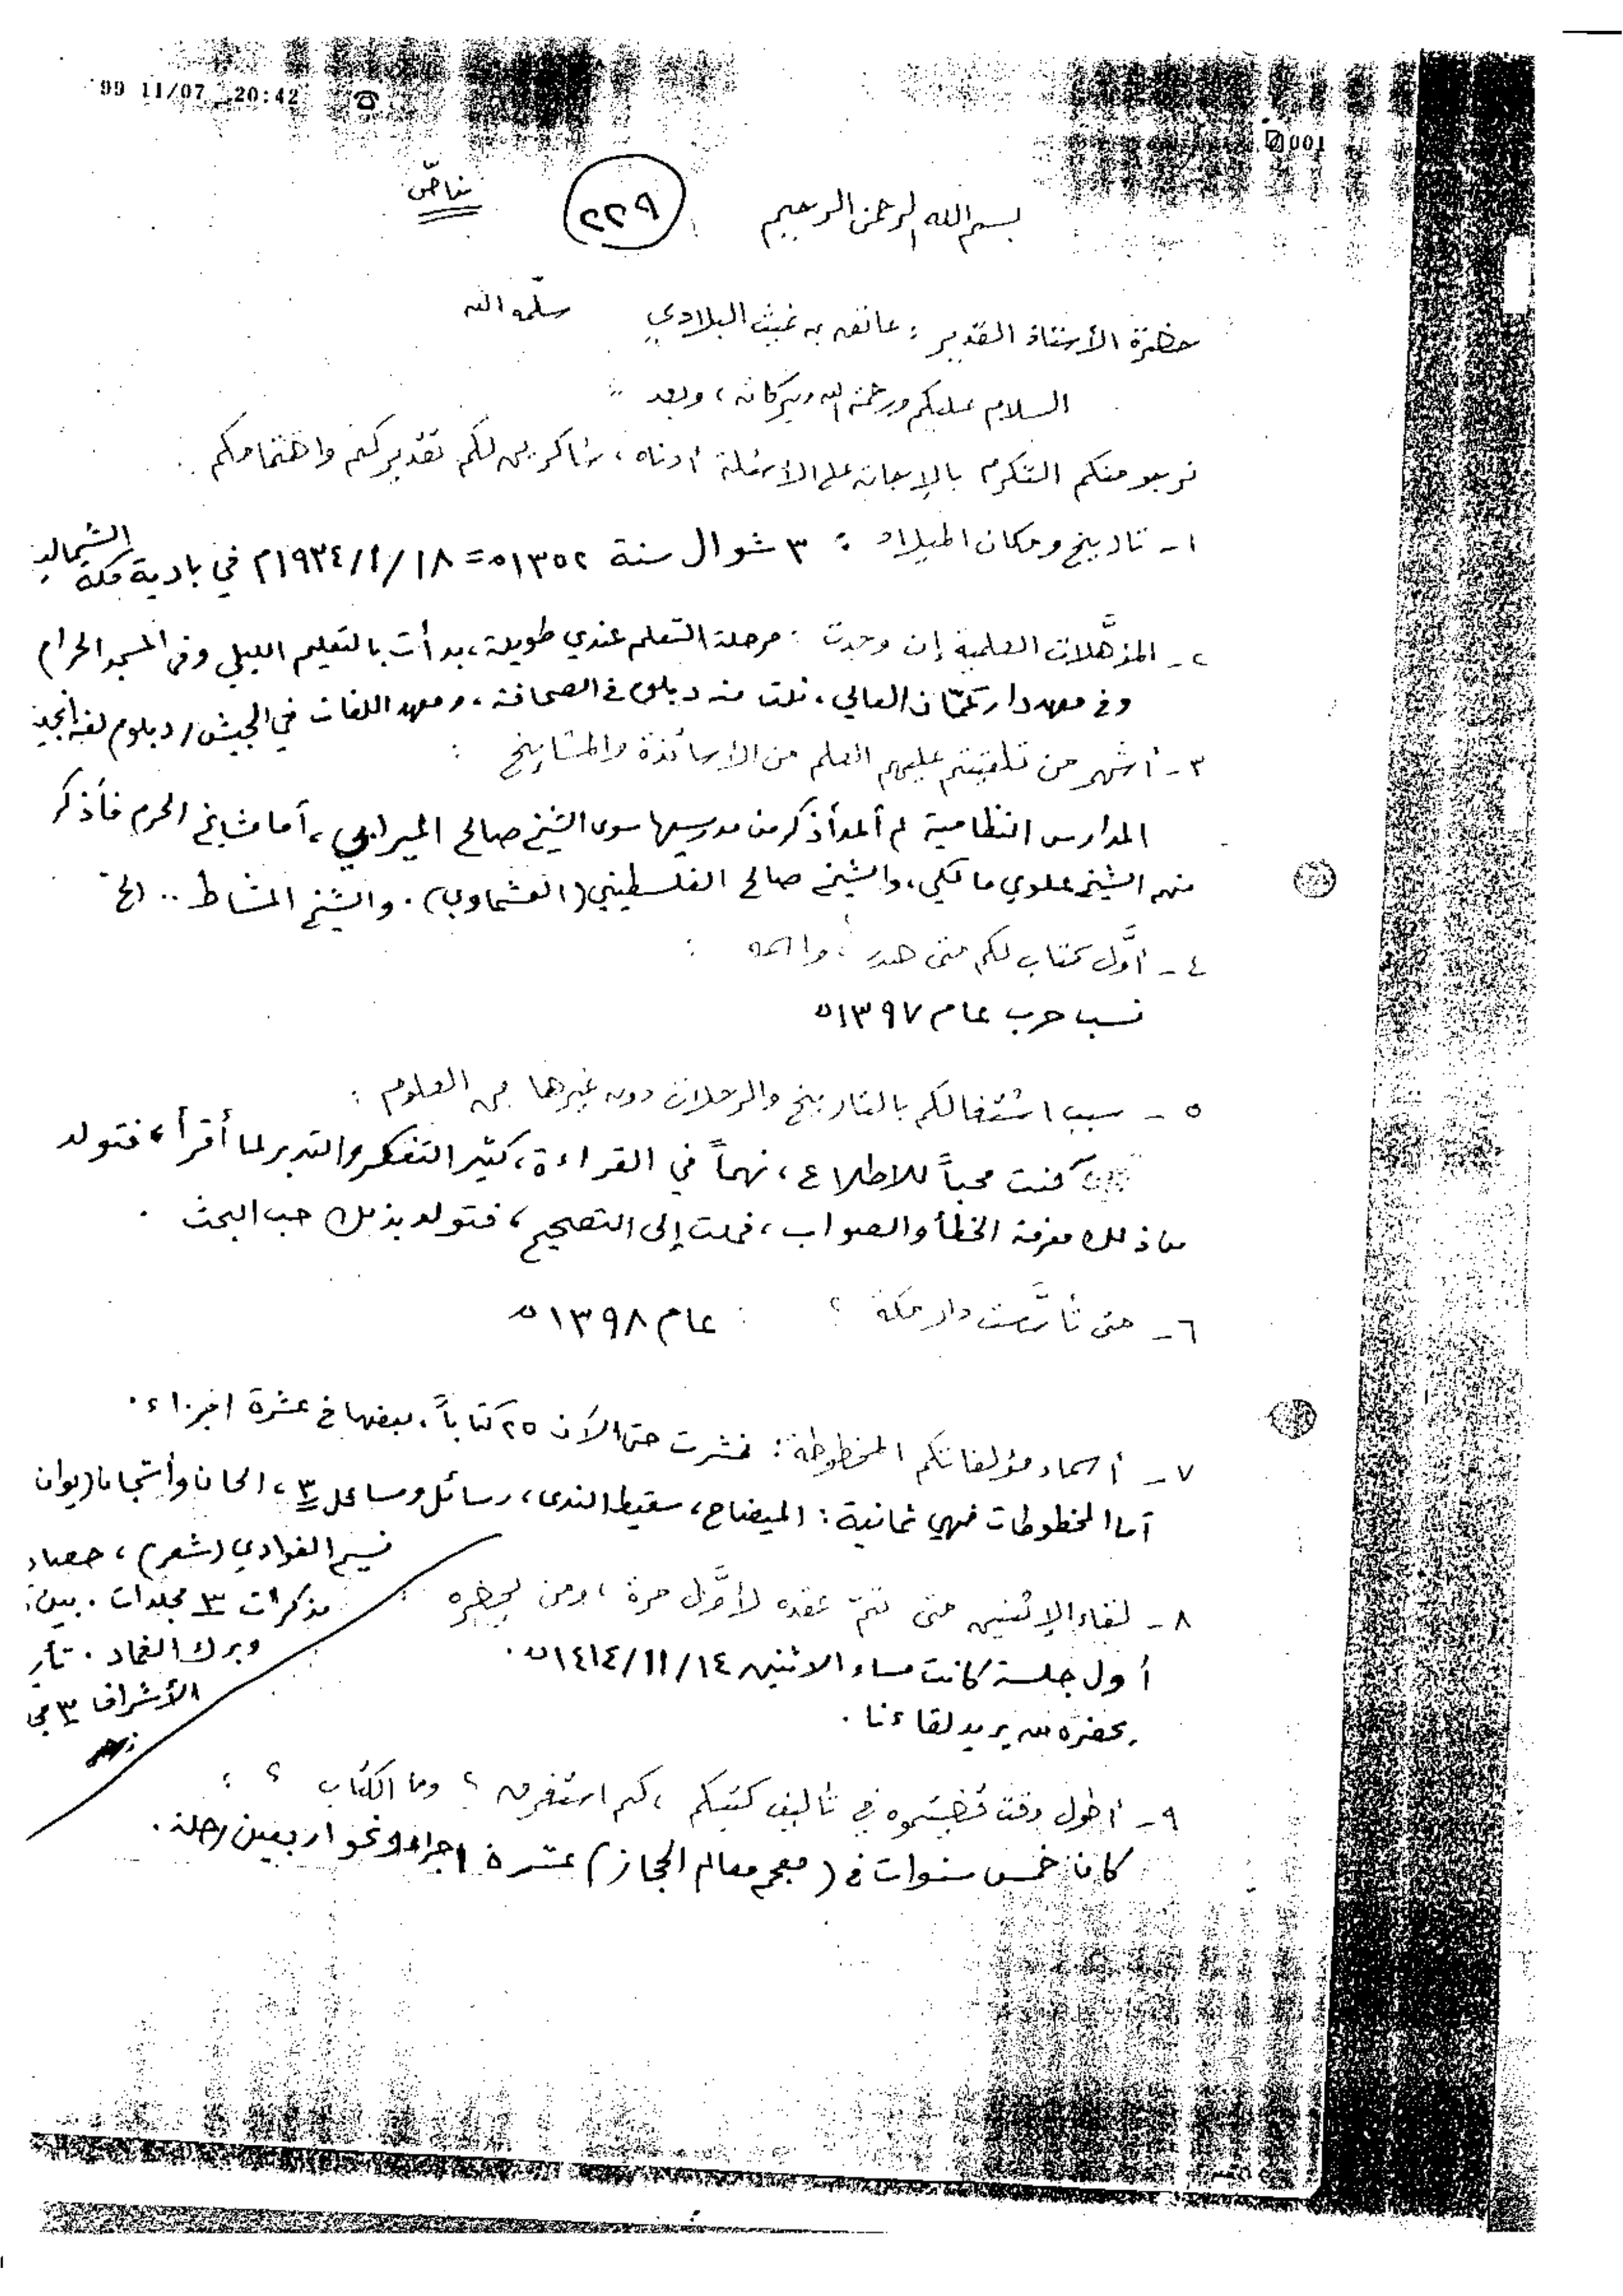 99 11/07 20:42 ☎
001
خاصّ
٢٢٩
بسم الله الرحمن الرحيم
حضرة الأستاذ القدير : عاتق بن غيث البلادي سلّمه الله
السلام عليكم ورحمة الله وبركاته ، وبعد ..
نرجو منكم التكرم بالإجابة على الأسئلة أدناه ، شاكرين لكم تقديركم واهتمامكم .
١ - تاريخ ومكان الميلاد : ٣ شوال سنة ١٣٥٢هـ = ١٨ /١/ ١٩٣٤م في بادية مكة الشمالية
٢ - المؤهَّلات العلمية إن وجدت : مرحلة التعلم عندي طويلة ، بدأت بالتعليم الليلي وفي المسجد الحرام
وفي معهد دار العالي ، نلت منه دبلوم في الصحافة ، ومعهد اللغات في الجيش / دبلوم لغة
٣ - أشهر من تلقيتم عليهم العلم من الأساتذة والمشايخ :
المدارس النظامية لم أعد أذكر من مدرسيها سوى الشيخ صالح ، أما مشايخ الحرم فأذكر
منهم الشيخ علوي مالكي ، والشيخ صالح الفلسطيني (العشماوي) . والشيخ المشاط .. الخ
٤ - أوَّل كتاب لكم متى صدر ، وما اسمه :
نسب حرب عام ١٣٩٧هـ
٥ - سبب اشتغالكم بالتاريخ والرحلات دون غيرها من العلوم :
كنت محباً للاطلاع ، نهماً في القراءة ، كثير التفكر والتدبر لما أقرأ ، فتولد
من ذلك معرفة الخطأ والصواب ، فملت إلى التصحيح ، فتولد بذلك حب البحث .
٦ - متى تأسَّست دار مكة ؟ : عام ١٣٩٨هـ
٧ - أسماء مؤلفاتكم المخطوطة : نشرت حتى الآن ٢٥ كتاباً ، بعضها في عشرة أجزاء .
أما المخطوطات فهي ثمانية : الميضاح ، سقيط الندى ، رسائل ومسائل ٣ ، الحان وأشجان ديوان
نسيم الغوادي (شعر) ،
مذكرات ٣ مجلدات .
وبرك الغماد .
الأشراف ٣
٨ - لقاء الإثنين متى تمّ عقده لأوَّل مرة ، ومن يحضره :
أول جلسة كانت مساء الاثنين ١٤ /١١/ ١٤١٤هـ .
يحضره من يريد لقاءنا .
٩ - أطول وقت قضيتموه في تأليف كتبكم ، كم استغرق ؟ وما الكتاب ؟ :
كان خمس سنوات في (معجم معالم الحجاز) عشرة أجزاء ونحو أربعين رحلة .